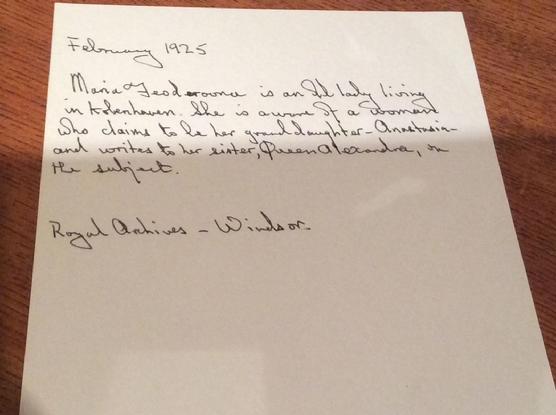 February 1925
Maria Feoderovna is an old lady living
in Kobenhaven. She is aware of a woman
who claims to be her granddaughter - Anastasia -
and writes to her sister, Queen Alexandra, on
the subject.
Royal Archives - Windsor.